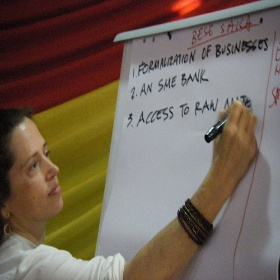 BESE SAKA
1. FORMALIZATION OF BUSINESSES
2. AN SME BANK
3. ACCESS TO RAW MATE